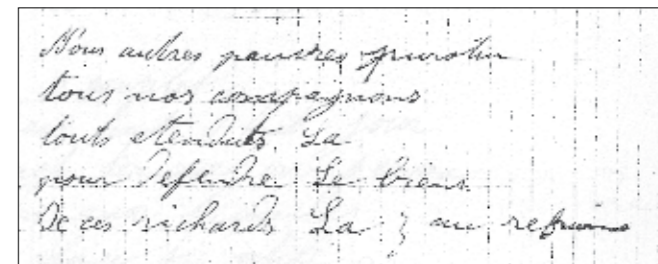 Nous autres pauvres purotin
tous nos compagnons
touts etenduts La
pour defendre Le biens
De ces richards La ; au refrains